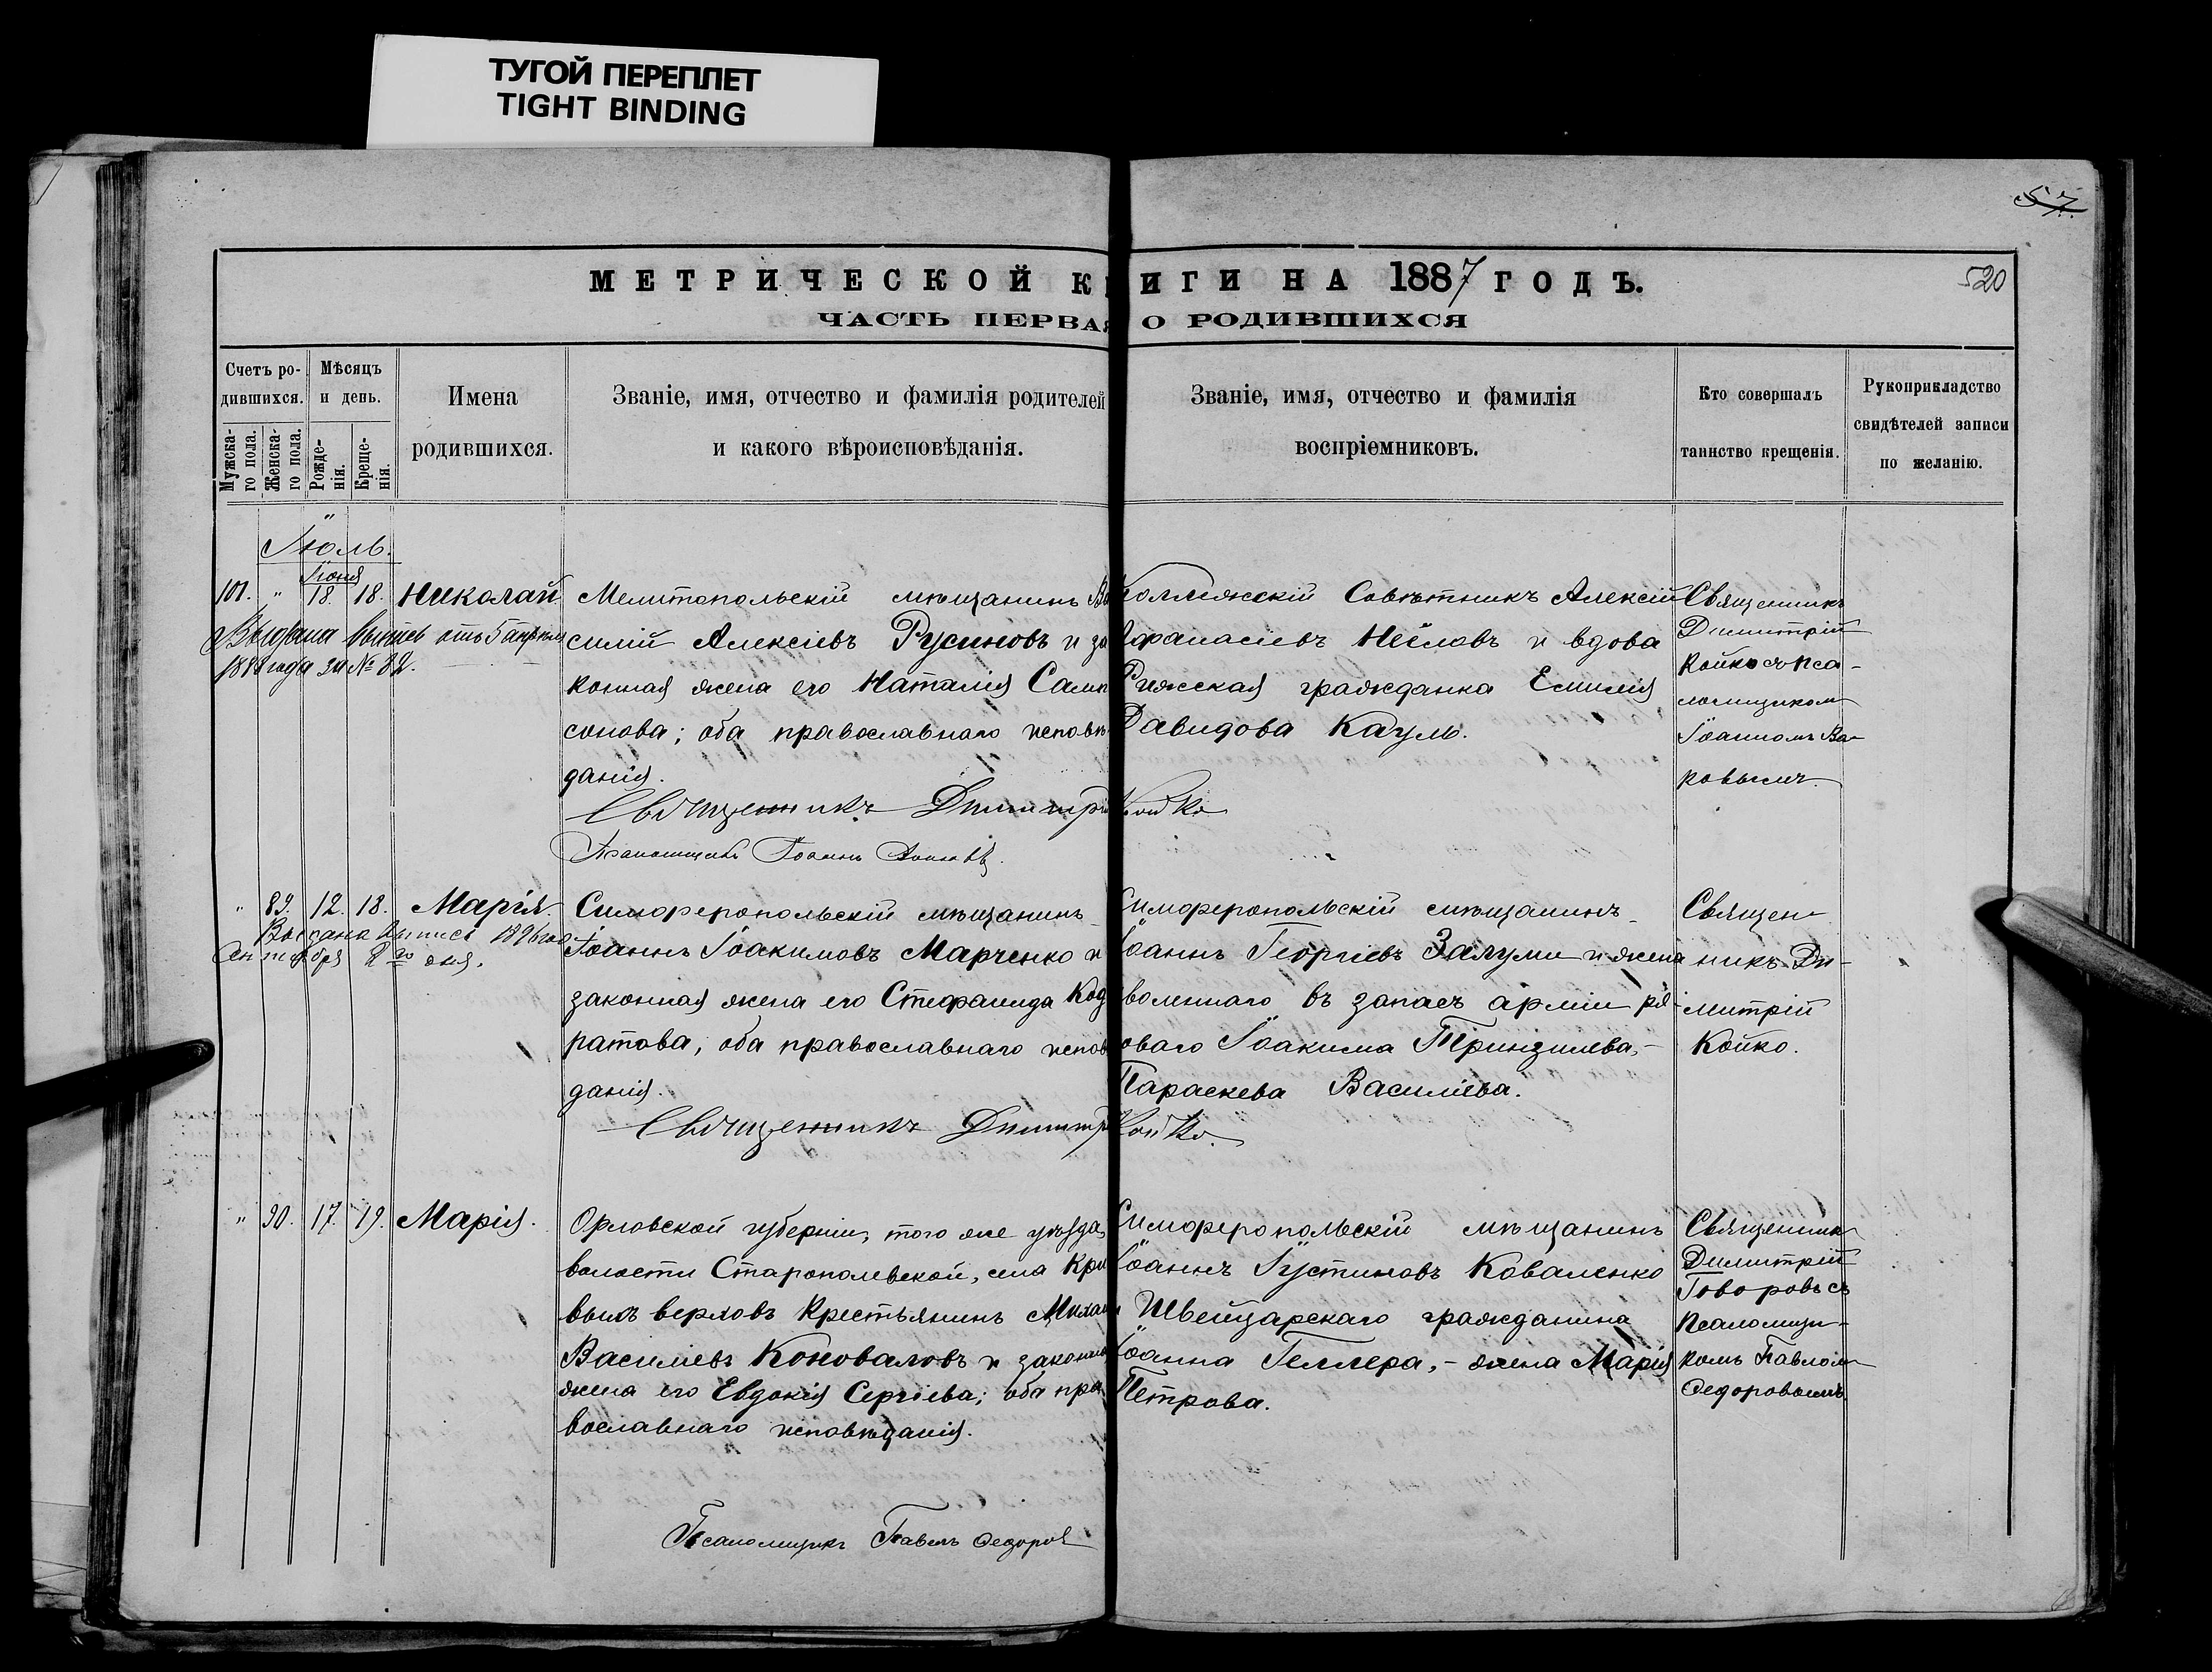 ТУГОЙ ПЕРЕПЛЕТ
TIGHT BINDING
57
520
МЕТРИЧЕСКОЙ К
ИГИ НА 1887 ГОДЪ.
ЧАСТЬ ПЕРВАЯ
О РОДИВШИХСЯ
Счетъ ро-
дившихся.
Мужска-
го пола.
Женска-
го пола.
Мѣсяцъ
и день.
Рожде-
нія.
Креще-
нія.
Имена
родившихся.
Званіе, имя, отчество и фамилія родителей
и какого вѣроисповѣданія.
Званіе, имя, отчество и фамилія
воспріемниковъ.
Кто совершалъ
таинство крещенія.
Рукоприкладство
свидѣтелей записи
по желанію.
Іюль.
Іюня
101. " 18. 18. Николай
Выдана выпись отъ 5 апрѣля
1888 года за № 82.
Мелитопольскій мѣщанинъ Ва
силій Алексіевъ Русиновъ и за
конная жена его Наталія Самп
сонова; оба православнаго исповѣ
данія.
Священникъ Димитрі
Койко
Псаломщикъ Іоаннъ
Коллежскій Совѣтникъ Алексій
Афанасіевъ Неѣловъ и вдова
Рижская гражданка Емилія
Давидова Кауль.
Священникъ
Димитрій
Койко съ пса-
ломщикомъ
Іоанномъ
ровымъ.
" 89. 12. 18. Марія.
Выдана выпись 1896 года
Октября 2го дня.
Симферопольскій мѣщанинъ
Іоаннъ Іоакимовъ Марченко и
законная жена его Стефанида Код
ратова; оба православнаго испов
данія.
Священникъ Димитр
Койко.
Симферопольскій мѣщанинъ
Іоаннъ Георгіевъ Залуми и жена
воленнаго въ запасъ арміи ря-
оваго Іоакима Тринзилева,-
Параскева Василіева.
Священ-
никъ Ди-
митрій
Койко.
" 90. 17. 19. Марія.
Орловской губерніи, того же уѣзда,
волости Старополевской, села Кри
выхъ верховъ крестьянинъ Михаи
Василіевъ Коноваловъ и законна
жена его Евдокія Сергіева; оба пра
вославнаго исповѣданія.
Псаломщикъ Павелъ Федоровъ
Симферопольскій мѣщанинъ
Іоаннъ Іустиновъ Коваленко
и Швейцарскаго гражданина
Іоанна Геллера,- жена Марія
Петрова.
Священникъ
Димитрій
Говоровъ съ
псаломщи-
комъ Павломъ
Федоровымъ.